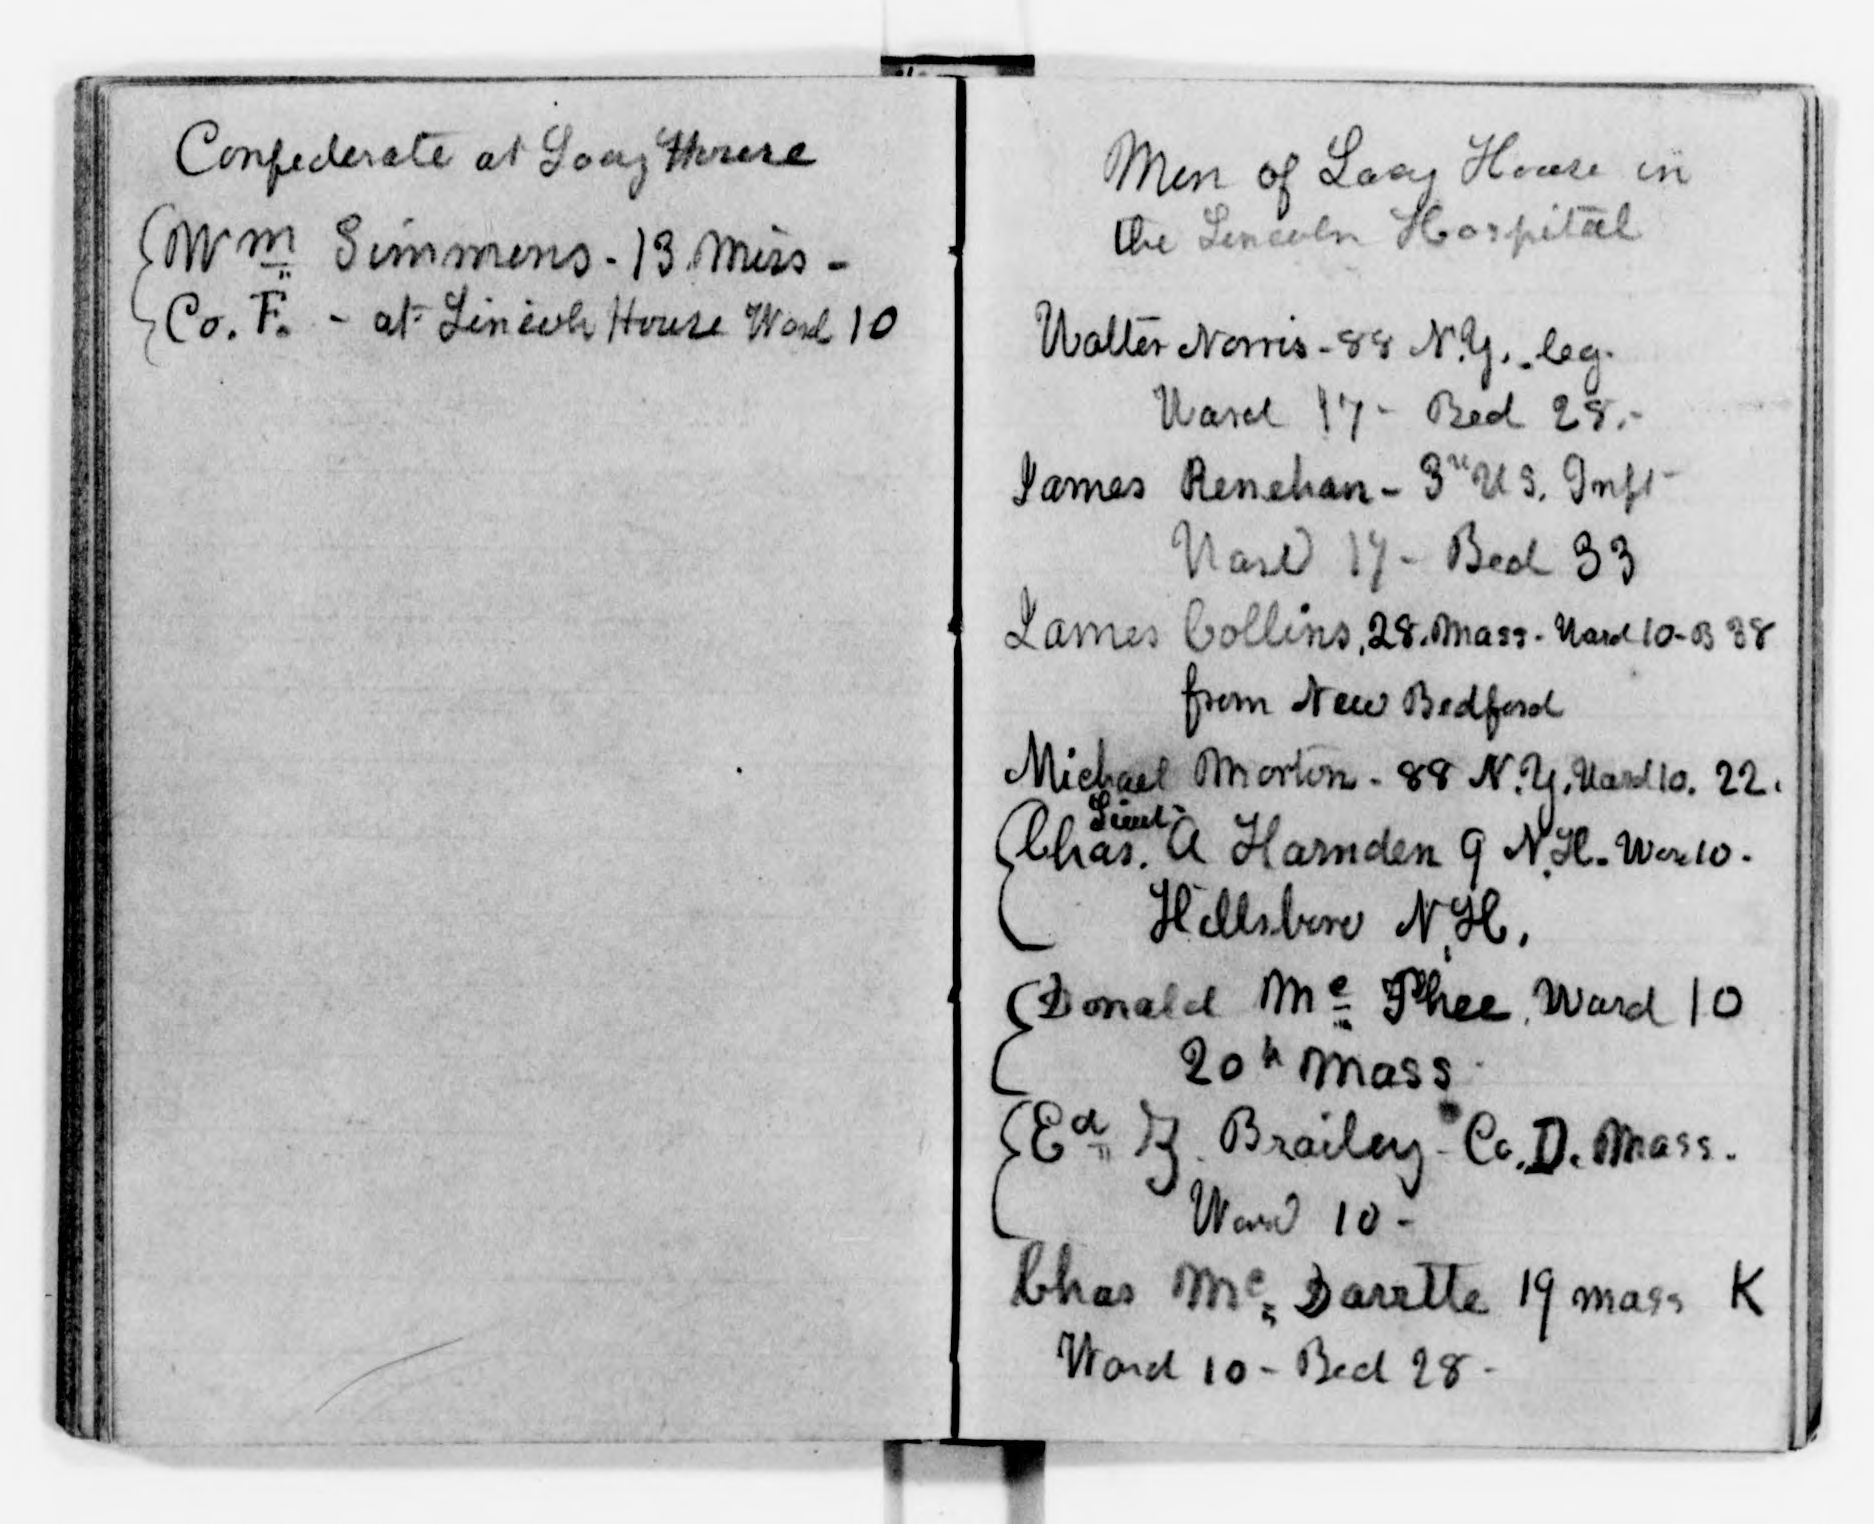 Confederate at Lacy House
Wm Simmons - 13 Miss -
Co. F. - at Lincoln House Ward 10
Men of Lacy House in
the Lincoln Hospital
Walter Norris - 88 N.Y. - leg.
Ward 17 - Bed 28. -
James Renehan - 3rd U S. Inft -
Ward 17 - Bed 33
James Collins, 28. Mass - Ward 10 - B 38
from New Bedford
Michael Morton - 88 N.Y. Ward 10. 22.
Lieut
Chas. A Harnden 9 N.H. Ward 10 -
Hillsboro N.H.
Donald Mc Phee, Ward 10
20th Mass
Ed Z. Brailey - Co. D. Mass.
Ward 10 -
Chas Mc Darrtte 19 mass K
Ward 10 - Bed 28 -